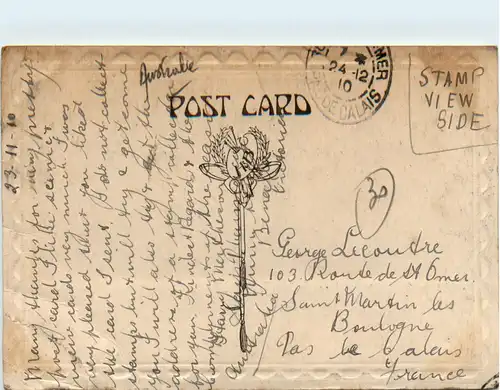 Australie
POST CARD
24-12
10
PAS DE CALAIS
STAMP
VIEW
SIDE
30
23.11.10
Many thanks for very pretty
post card I like scenic &
view cards very much. I was
very pleased that you liked
the card I sent. I do not collect
stamps but will try & get some
you. I will also try & get the
address of a stamp collector
for you. Kindest Regards & the
compliments of the season
George Lecoutre
103. Route de St Omer
Saint Martin les
Boulogne
Pas de Calais
France